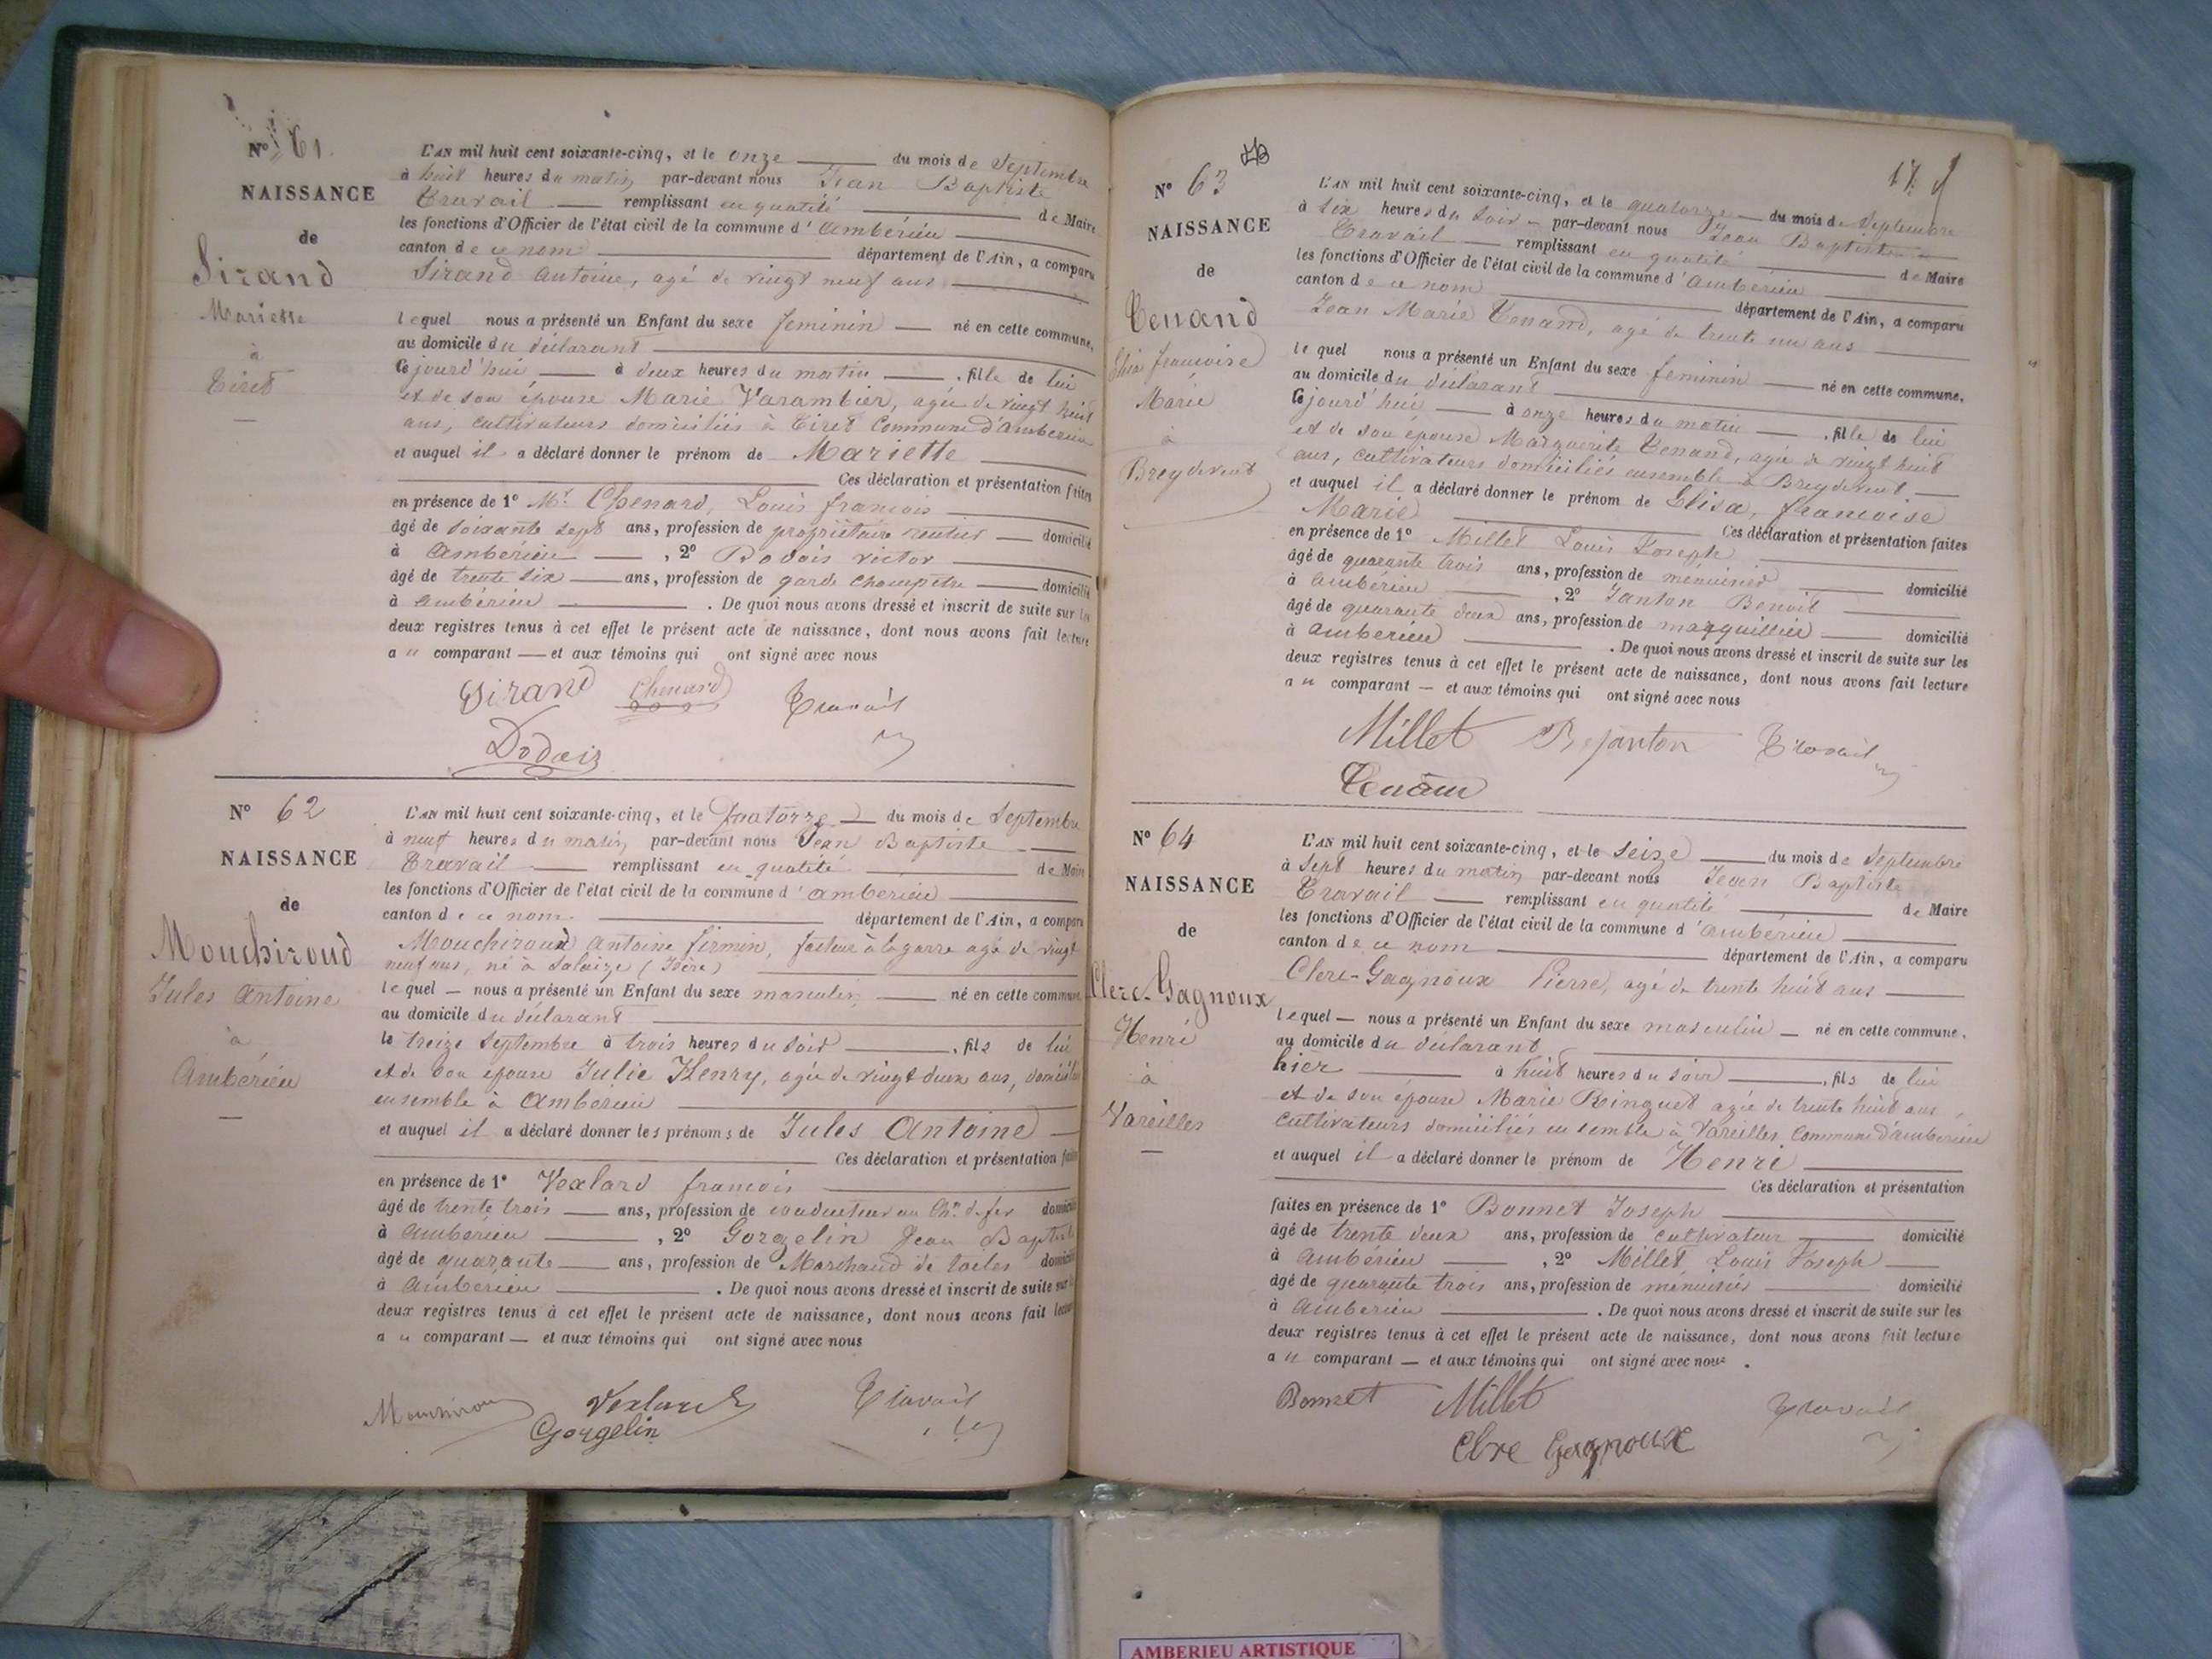 N° 61.
NAISSANCE
de
Sirand
Mariette
à
Tiret
L'AN mil huit cent soixante-cinq, et le onze du mois de Septembre
à huit heures du matin, par-devant nous Jean Baptiste
Travail remplissant en qualité de Maire
les fonctions d'Officier de l'état civil de la commune d'Ambérieu
canton de ce nom département de l'Ain, a comparu
Sirand Antoine, agé de vingt neuf ans
lequel nous a présenté un Enfant du sexe feminin né en cette commune,
au domicile du déclarant
cejourd'hui à deux heures du matin, fille de lui
et de son épouse Marie Varambier, agée de vingt huit
ans, cultivateurs domiciliés à Tiret Commune d'Ambérieu
et auquel il a déclaré donner le prénom de Mariette
Ces déclaration et présentation faites
en présence de 1° Mr. Chenard, Louis francois
âgé de soixante sept ans, profession de propriétaire rentier domicilié
à Ambérieu, 2° Dodais victor
âgé de trente six ans, profession de garde champêtre domicilié
à Ambérieu. De quoi nous avons dressé et inscrit de suite sur les
deux registres tenus à cet effet le présent acte de naissance, dont nous avons fait lecture
au comparant et aux témoins qui ont signé avec nous
Sirand Chenard Travail
Dodais
N° 62
NAISSANCE
de
Mouchiroud
Jules Antoine
à
Ambérieu
L'AN mil huit cent soixante-cinq, et le quatorze du mois de Septembre
à neuf heures du matin, par-devant nous Jean Baptiste
Travail remplissant en qualité de Maire
les fonctions d'Officier de l'état civil de la commune d'Ambérieu
canton de ce nom département de l'Ain, a comparu
Mouchiroud Antoine firmin, facteur à la garre agé de vingt
neuf ans, né à Salaize (Isère)
lequel nous a présenté un Enfant du sexe masculin né en cette commune,
au domicile du déclarant
le treize Septembre à trois heures du soir, fils de lui
et de son épouse Julie Henry, agée de vingt deux ans, domiciliés
ensemble à Ambérieu
et auquel il a déclaré donner les prénoms de Jules Antoine
Ces déclaration et présentation faites
en présence de 1° Vexlard francois
âgé de trente trois ans, profession de conducteur au Ch.n de fer domicilié
à Ambérieu, 2° Gorgelin Jean Baptiste
âgé de quarante ans, profession de Marchand de toiles domicilié
à Ambérieu. De quoi nous avons dressé et inscrit de suite sur les
deux registres tenus à cet effet le présent acte de naissance, dont nous avons fait lecture
au comparant et aux témoins qui ont signé avec nous
Mouchiroud Vexlard Travail
Gorgelin
17
N° 63
NAISSANCE
de
Tenand
Elisa francoise
Marie
à
Breydevent
L'AN mil huit cent soixante-cinq, et le quatorze du mois de Septembre
à six heures du soir par-devant nous Jean Baptiste
Travail remplissant en qualité de Maire
les fonctions d'Officier de l'état civil de la commune d'Ambérieu
canton de ce nom département de l'Ain, a comparu
Jean Marie Tenand, agé de trente un ans
lequel nous a présenté un Enfant du sexe feminin né en cette commune,
au domicile du déclarant
cejourd'hui à onze heures du matin, fille de lui
et de son épouse Marguerite Tenand, agée de vingt huit
ans, cultivateurs domiciliés ensemble à Breydevent
et auquel il a déclaré donner le prénom de Elisa, francoise
Marie Ces déclaration et présentation faites
en présence de 1° Millet Louis Joseph
âgé de quarante trois ans, profession de menuisier domicilié
à Ambérieu, 2° Janton Benoit
âgé de quarante deux ans, profession de marguillier domicilié
à Ambérieu. De quoi nous avons dressé et inscrit de suite sur les
deux registres tenus à cet effet le présent acte de naissance, dont nous avons fait lecture
au comparant et aux témoins qui ont signé avec nous
Millet B Janton Travail
N° 64
NAISSANCE
de
Clerc-Gagnoux
Henri
à
Vareilles
L'AN mil huit cent soixante-cinq, et le seize du mois de Septembre
à Sept heures du matin, par-devant nous Jean Baptiste
Travail remplissant en qualité de Maire
les fonctions d'Officier de l'état civil de la commune d'Ambérieu
canton de ce nom département de l'Ain, a comparu
Clerc-Gagnoux Pierre, agé de trente huit ans
lequel nous a présenté un Enfant du sexe masculin né en cette commune.
au domicile du déclarant
hier à huit heures du soir, fils de lui
et de son épouse Marie Ringuet agée de trente huit ans,
cultivateurs domiciliés ensemble à Vareilles, Commune d'Ambérieu
et auquel il a déclaré donner le prénom de Henri
Ces déclaration et présentation
faites en présence de 1° Bonnet Joseph
âgé de trente deux ans, profession de cultivateur domicilié
à Ambérieu, 2° Millet Louis Joseph
âgé de quarante trois ans, profession de menuisier domicilié
à Ambérieu. De quoi nous avons dressé et inscrit de suite sur les
deux registres tenus à cet effet le présent acte de naissance, dont nous avons fait lecture
au comparant et aux témoins qui ont signé avec nous.
Bonnet Millet Travail
Clre Gagnoux
AMBERIEU ARTISTIQUE